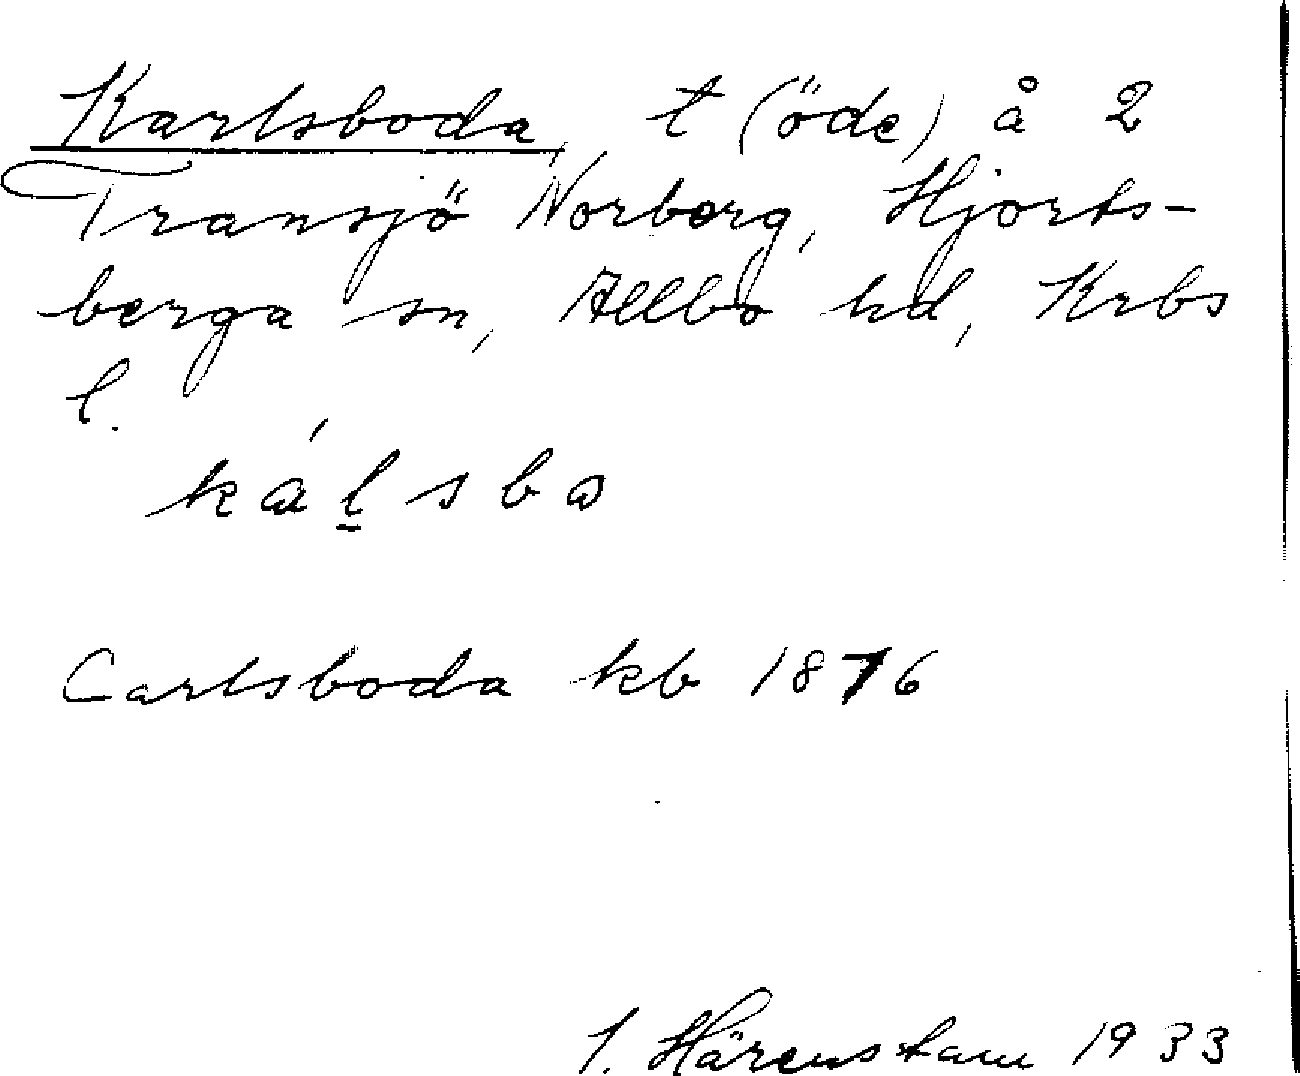 Karlsboda, t (öde) å 2
Transjö Norberg, Hjorts-
berga sn, Allbo hd, Krbs
l.
ká́l̲sbo
Carlsboda kb 1876
I. Härenstam 1933